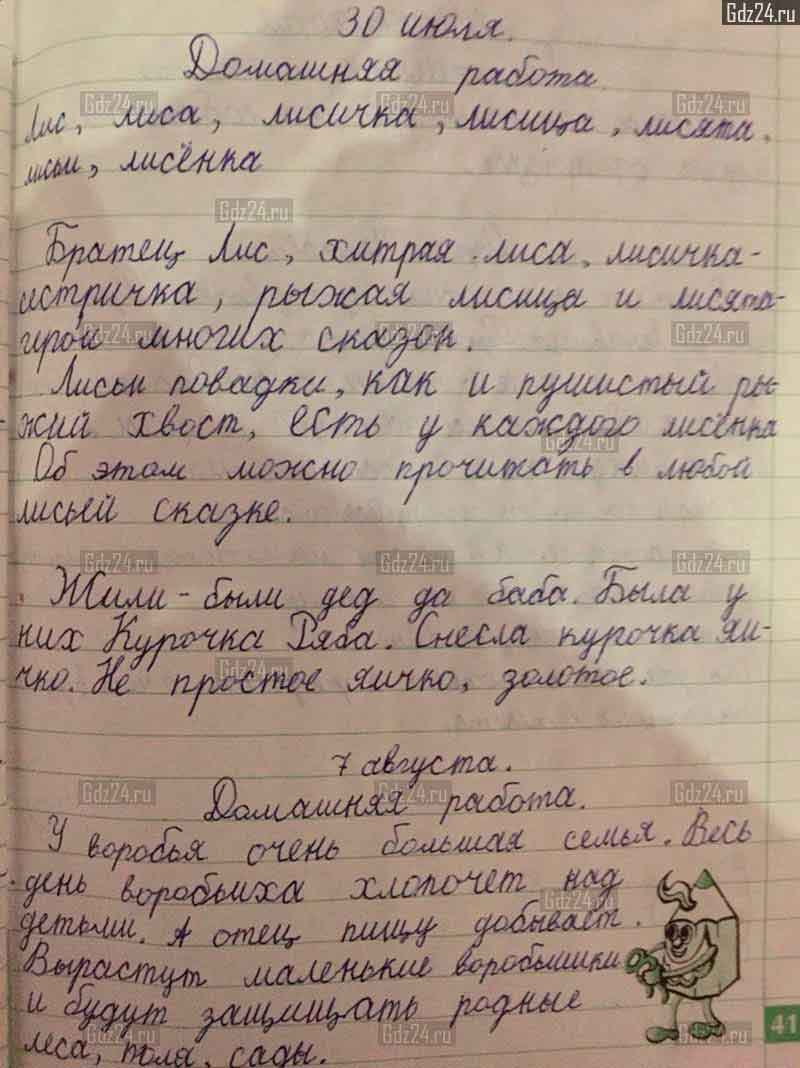 Gdz24.ru
30 июля.
Домашняя работа.
Лис, лиса, лисичка, лисица, лисята,
лисьи, лисёнка
Братец Лис, хитрая лиса, лисичка-
сестричка, рыжая лисица и лисята-
герои многих сказок.
Лисьи повадки, как и пушистый ры-
жий хвост, есть у каждого лисёнка
Об этом можно прочитать в любой
лисьей сказке.
Жили-были дед да баба. Была у
них Курочка Ряба. Снесла курочка яи-
чко. Не простое яичко, золотое.
7 августа.
Домашняя работа.
У воробья очень большая семья. Весь
день воробьиха хлопочет над
детьми. А отец пищу добывает.
Вырастут маленькие воробышки
и будут защищать родные
леса, поля, сады.
41